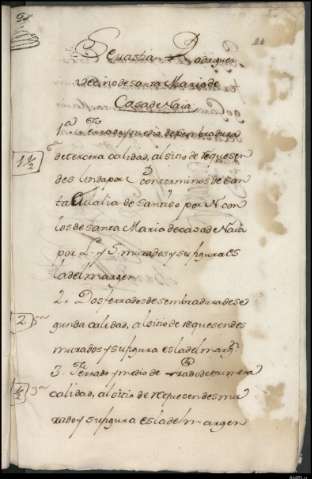 Sevastian Rodriguez
Vecino de santa Maria de
Casa de Naia
1ª ferrado y medio de sembradura
1½ de tercera calidad, al sitio de requesen
des linda por P con terminos de san
ta Eulalia de santiso por N con
los de santa Maria de casa de Naia
por L. y S. murados y su figura es
la del margen
2. Dos ferrados de sembradura de se
2 gunda calidad, al sitio de requesendes
murados y su figura es la del margn
3 ferrado y medio de de tercera
calidad, al sitio de requesendes mu
rado y su figura es la del margen